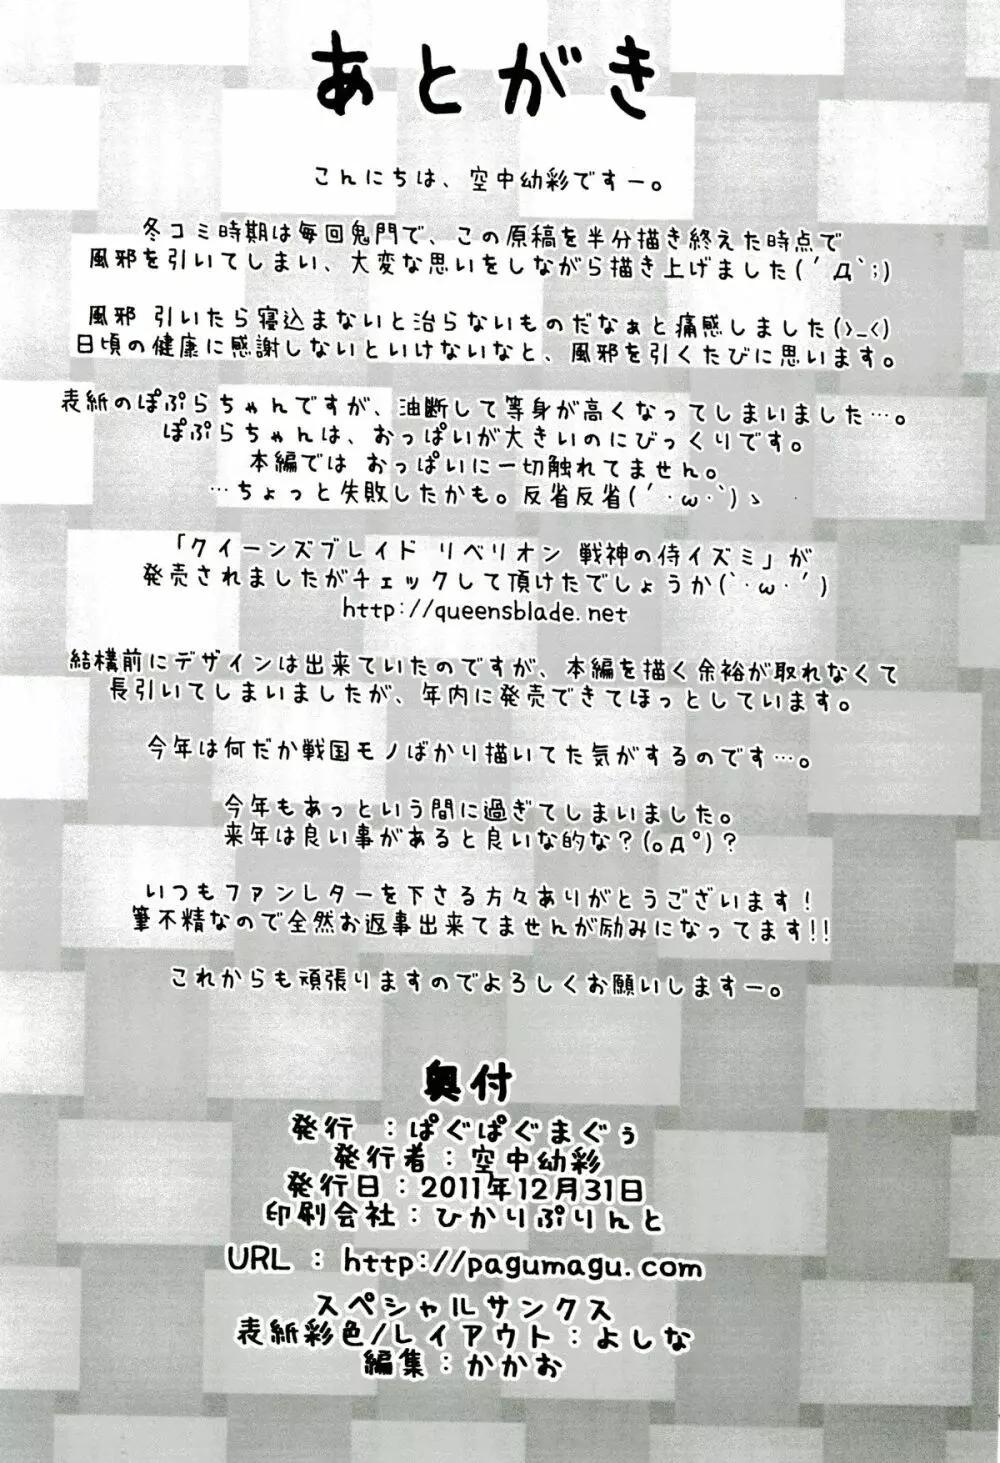 あとがき
こんにちは、空中幼彩ですー。
冬コミ時期は毎回鬼門で、この原稿を半分描き終えた時点で
風邪を引いてしまい、大変な思いをしながら描き上げました(´Д`;)
風邪 引いたら寝込まないと治らないものだなぁと痛感しました(>_<)
日頃の健康に感謝しないといけないなと、風邪を引くたびに思います。
表紙のぽぷらちゃんですが、油断して等身が高くなってしまいました…。
ぽぷらちゃんは、おっぱいが大きいのにびっくりです。
本編では おっぱいに一切触れてません。
…ちょっと失敗したかも。反省反省(´･ω･`)ゝ
「クイーンズブレイド リベリオン 戦神の侍イズミ」が
発売されましたがチェックして頂けたでしょうか(`･ω･´)
http://queensblade.net
結構前にデザインは出来ていたのですが、本編を描く余裕が取れなくて
長引いてしまいましたが、年内に発売できてほっとしています。
今年は何だか戦国モノばかり描いてた気がするのです…。
今年もあっという間に過ぎてしまいました。
来年は良い事があると良いな的な?(｡д°)?
いつもファンレターを下さる方々ありがとうございます!
筆不精なので全然お返事出来てませんが励みになってます!!
これからも頑張りますのでよろしくお願いしますー。
奥付
発行 :ぱぐぱぐまぐぅ
発行者:空中幼彩
発行日:2011年12月31日
印刷会社:ひかりぷりんと
URL : http://pagumagu.com
スペシャルサンクス
表紙彩色/レイアウト:よしな
編集:かかお